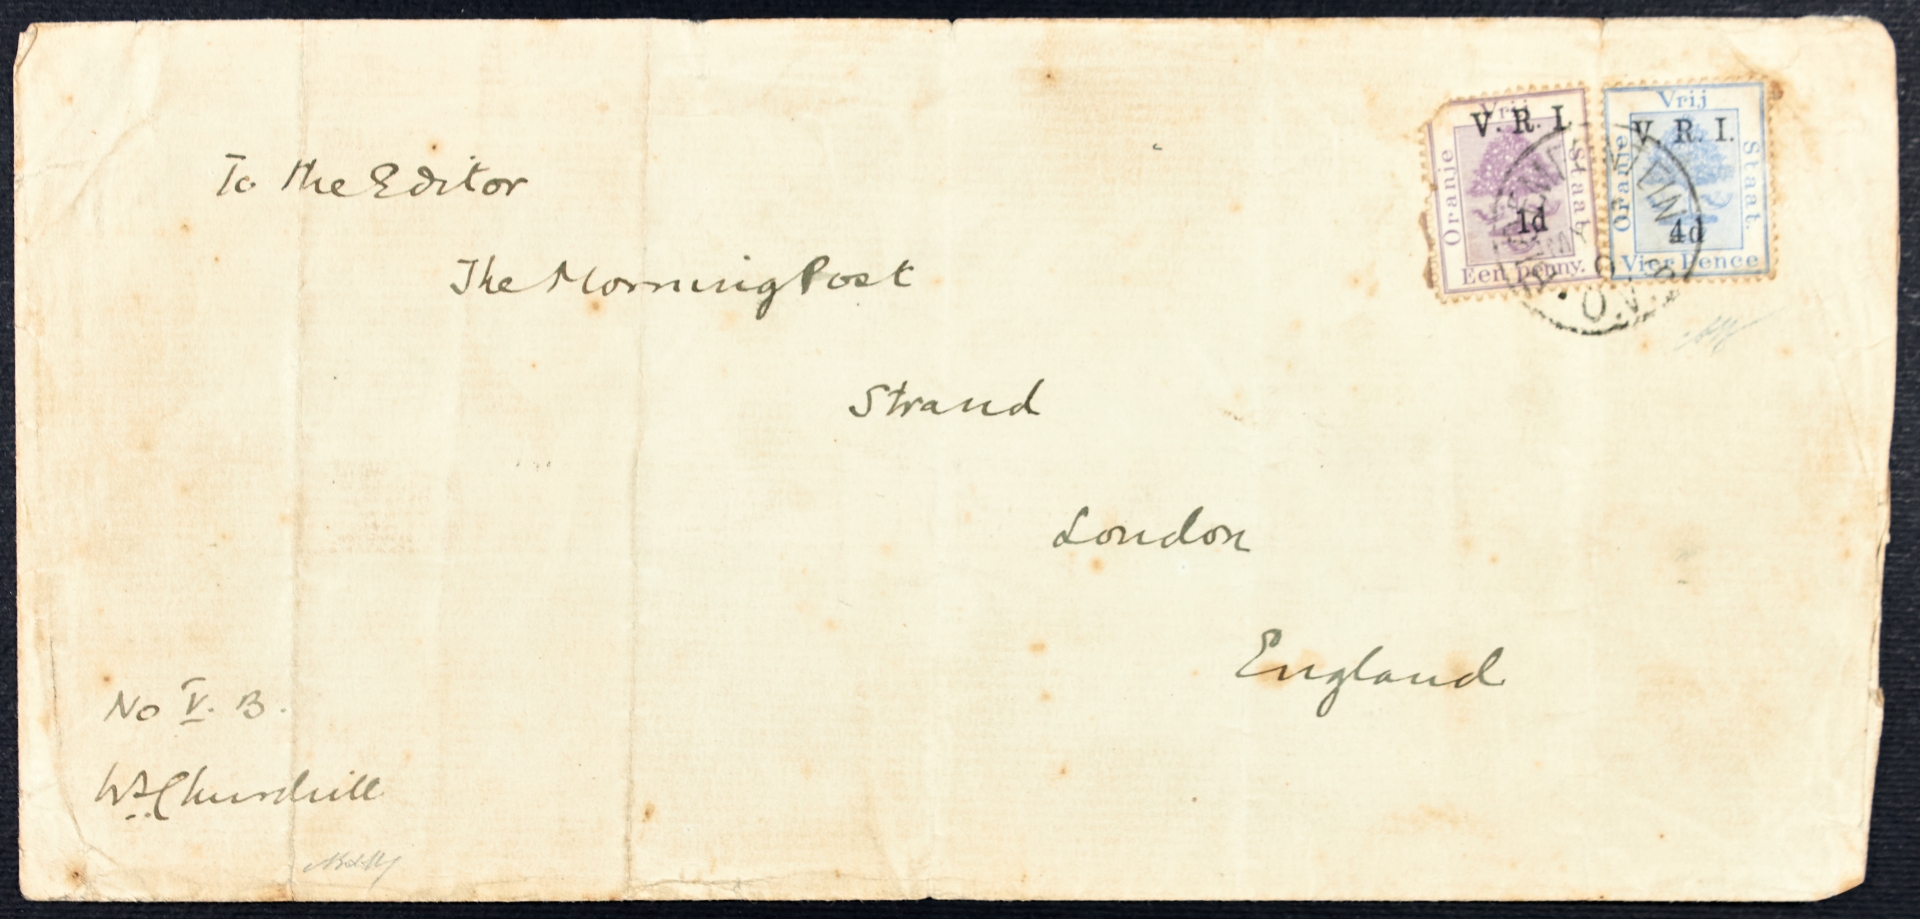 To the Editor
The Morning Post
Strand
London
England
No V. B.
WSChurchill
Vrij
V. R. I.
Oranje
Staat
1d
Een penny.
Vrij
V. R. I.
Oranje
Staat.
4d
Vier Pence